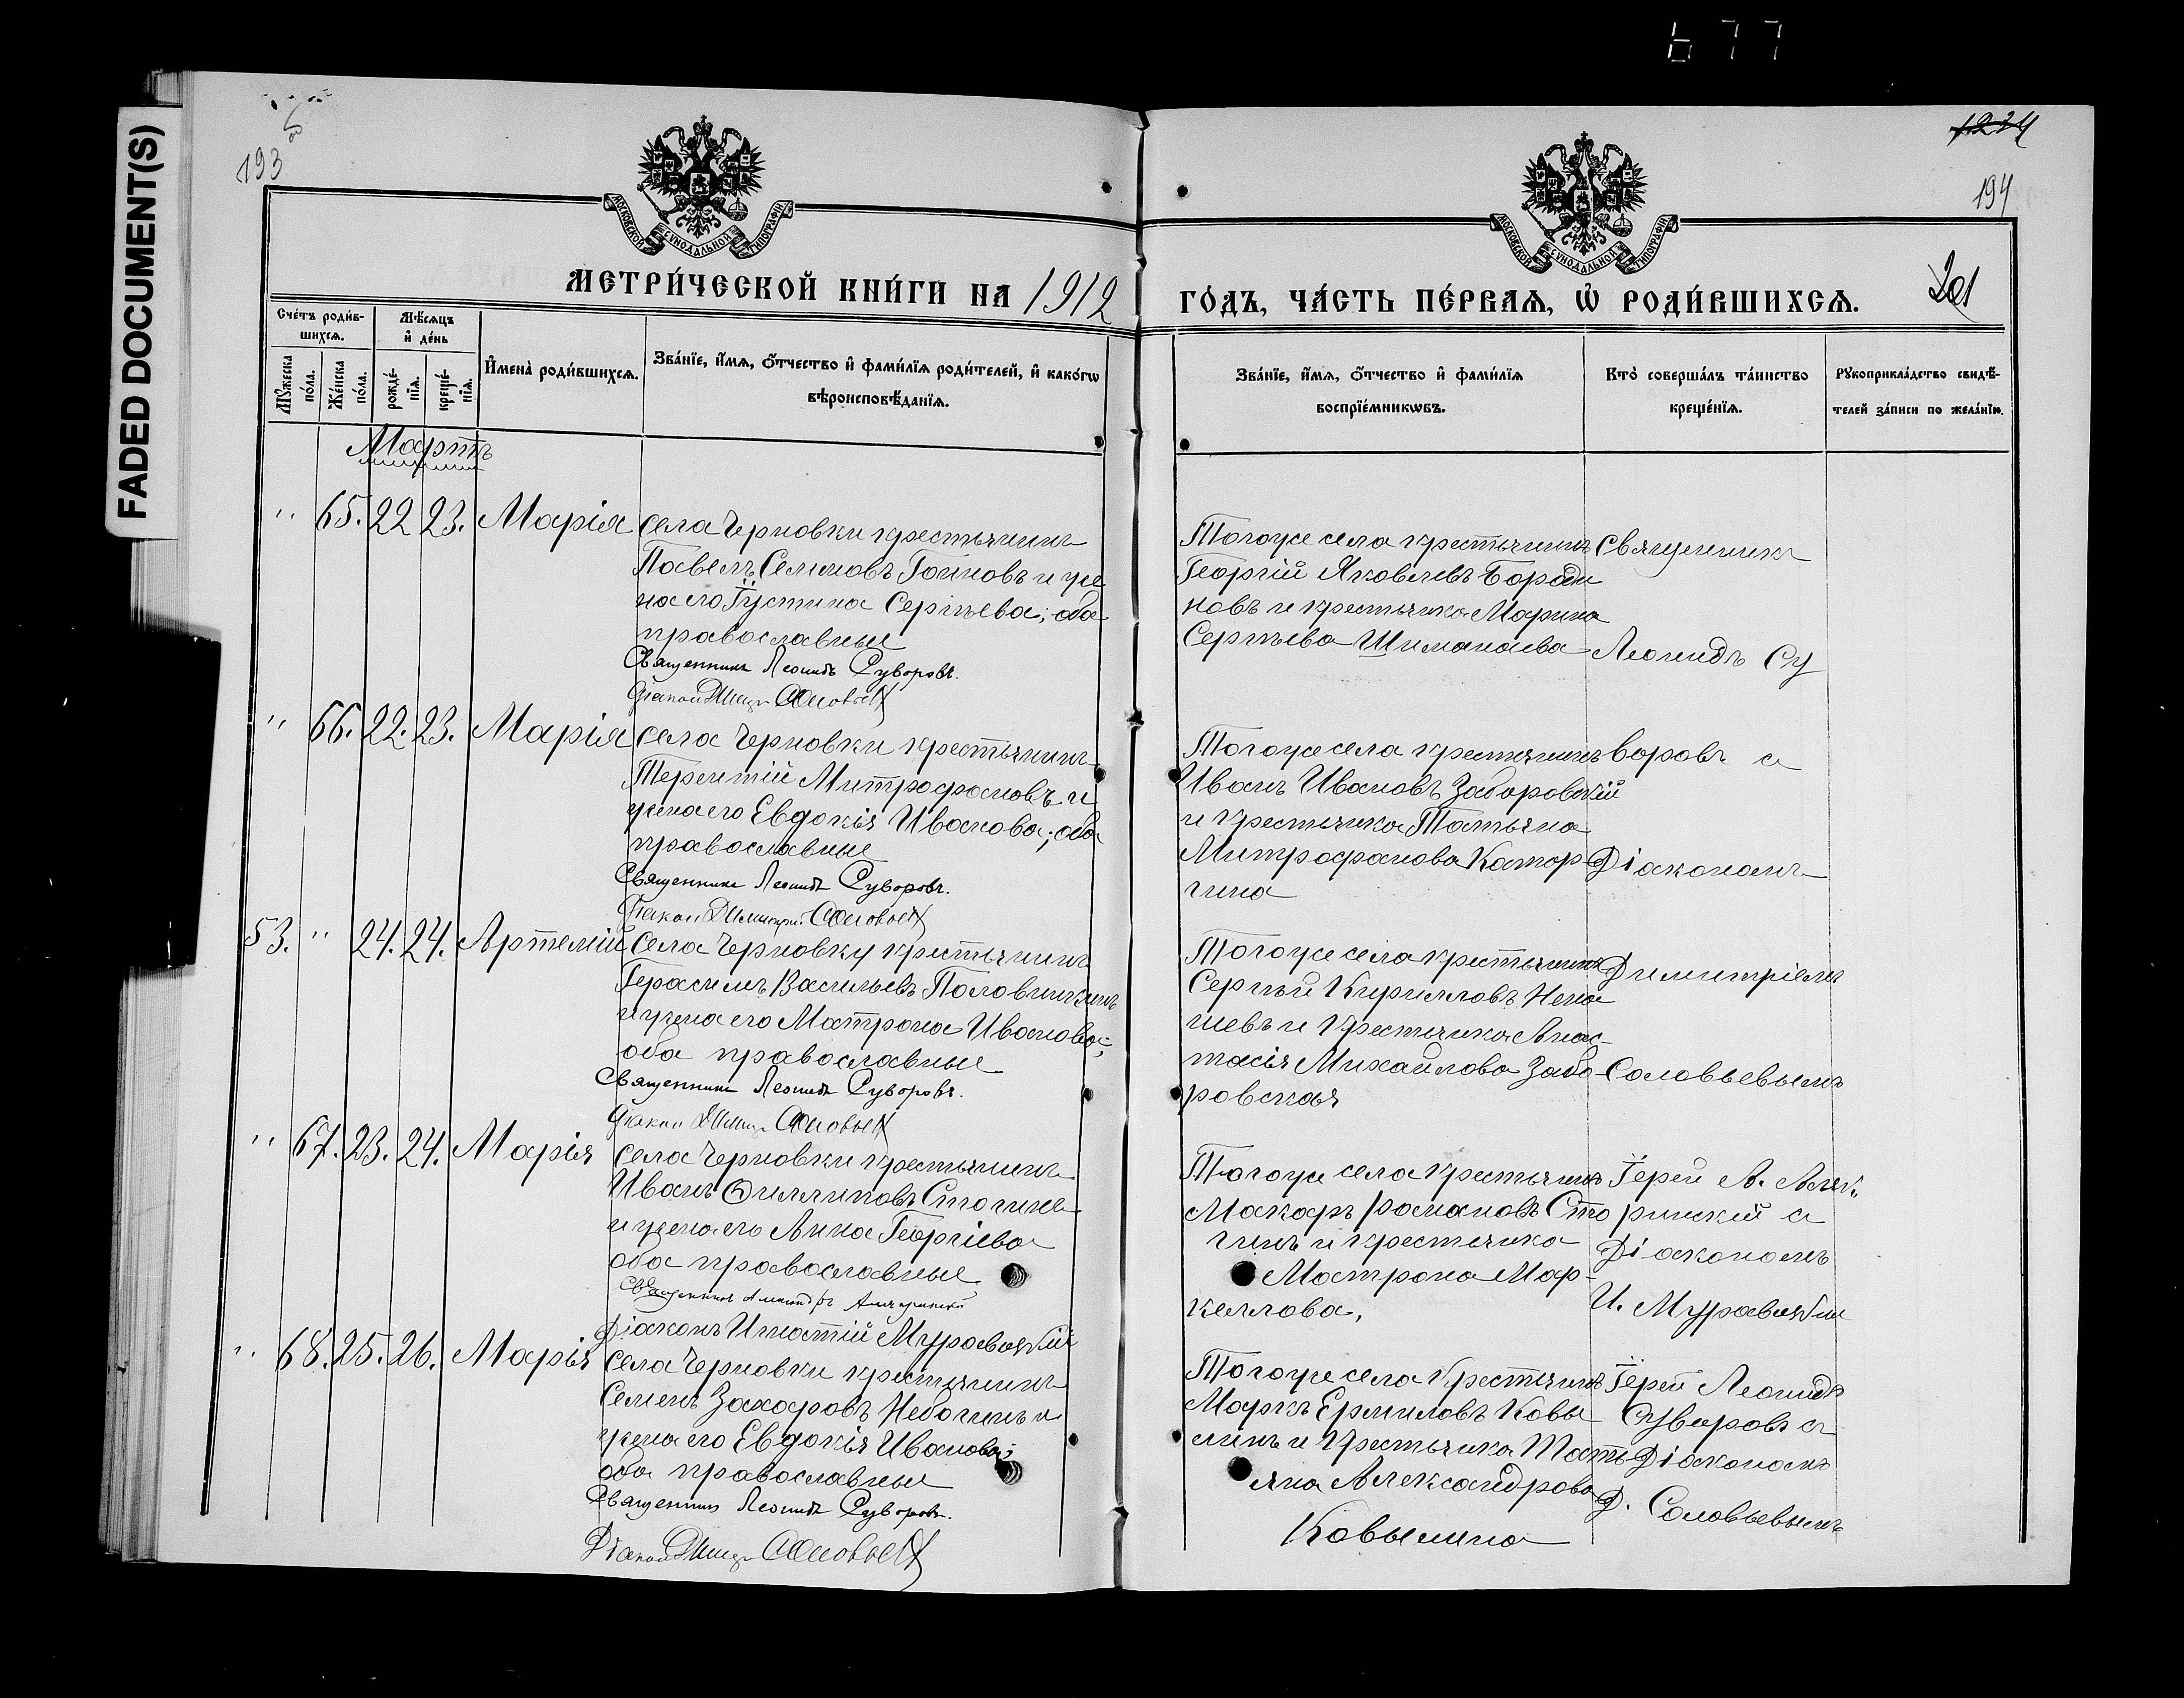 677
FADED DOCUMENT(S)
193 об
1234
194
201
МОСКОВСКОЙ СѴНОДАЛЬНОЙ ТИПОГРАФІИ
МОСКОВСКОЙ СѴНОДАЛЬНОЙ ТИПОГРАФІИ
МЕТРИ́ЧЕСКОЙ КНИ́ГИ НА 1912
ГО́ДЪ, ЧА́СТЬ ПЕ́РВАѦ, Ѡ҆ РОДИ́ВШИХСѦ.
Сче́тъ роди́в-
шихсѧ.
Мѣ́сѧцъ
и҆ де́нь
Мꙋ́жеска
по́ла.
Же́нска
по́ла.
рожде́-
нїѧ.
креще́-
нїѧ.
И҆мена̀ роди́вшихсѧ.
Зва́нїе, и҆́мѧ, ѻ҆́тчество и҆ фами́лїѧ роди́телей, и҆ како́гѡ
вѣроисповѣ́данїѧ.
Зва́нїе, и҆́мѧ, ѻ҆́тчество и҆ фами́лїѧ
воспрїе́мникѡвъ.
Кто̀ соверша́лъ та́инство
креще́нїѧ.
Рꙋкоприкла́дство свидѣ́-
телей за́писи по жела́нїю.
Мартъ
" 65. 22 23. Марія
села Черновки крестьянинъ
Павелъ Семеновъ Гоиновъ и же
на его Іустина Сергѣева; оба
православные
Священникъ Леонидъ Суворовъ.
Діаконъ Соловьев
Тогоже села крестьянинъ
Георгій Яковлевъ Бороди
новъ и крестьянка Марина
Сергѣева Шиманаева
Священникъ
Леонидъ Су
" 66. 22. 23. Марія
села Черновки крестьянинъ
Терентій Митрофановъ и
жена его Евдокія Иванова; оба
православные
Священникъ Леонидъ Суворовъ.
Діакон Димитрий Соловьев
Тогоже села крестьянинъ
Иванъ Ивановъ Заборовскій
и крестьянка Татьяна
Митрофанова Катор
гина
воровъ с
Діакономъ
53. " 24. 24. Артемій
села Черновки крестьянинъ
Герасимъ Васильевъ Половинкинъ
и жена его Матрона Иванова;
оба православные
Священникъ Леонидъ Суворовъ.
Діакон Соловьев
Тогоже села крестьянинъ
Сергѣй Кирилловъ Нена
шевъ и крестьянка Анас-
тасія Михаилова Забо
ровская
Димитріемъ
Соловьевымъ
" 67. 23. 24. Марія
села Черновки крестьянинъ
Иванъ Филлиповъ Стогинъ
и жена его Анна Георгіева
оба православные
Священникъ
Діаконъ Игнатій
Тогоже села крестьянинъ
Макаръ Романовъ Сто
гинъ и крестьянка
Матрона Мар-
келлова,
Іерей А.
ринскій с
Діакономъ
И.
" 68. 25. 26. Марія
села Черновки крестьянинъ
Семенъ Захаровъ Небогинъ и
жена его Евдокія Иванова;
оба православные
Священникъ Леонидъ Суворовъ.
Діакон Соловьев
Тогоже села крестьянинъ
Маркъ Ермиловъ Ковы
линъ и крестьянка Тать
яна Александрова
Ковылина
Іерей Леонидъ
Суворовъ с
Діакономъ
Д. Соловьевымъ